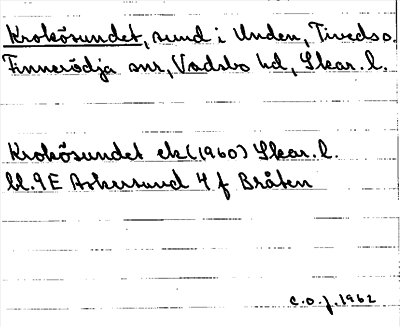 Krokösundet, sund i Unden, Tiveds o.
Finnerödja snr, Vadsbo hd, Skar. l.
Krokösundet ek (1960) Skar. l.
bl. 9E Askersund 4 f Bråten
c.o.f. 1962